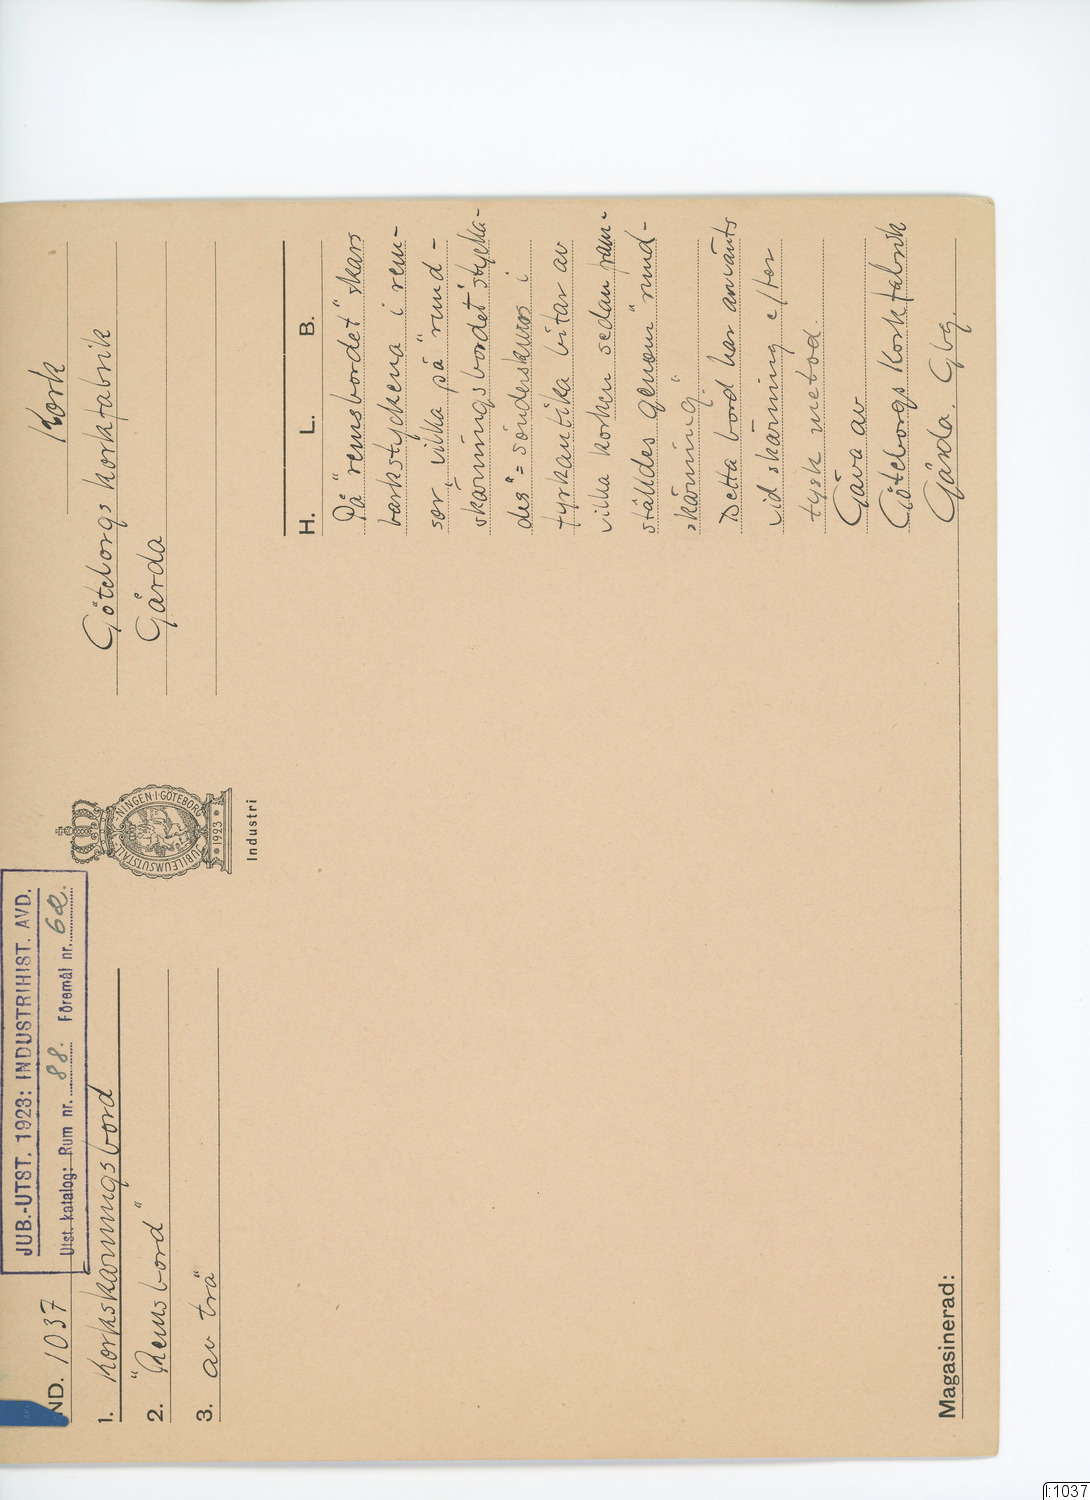 JUB.-UTST. 1923: INDUSTRIHIST. AVD.
Utst. katalog: Rum nr. 88. Föremål nr. 62.
ND. 1037
Kork
1. Korkskärningsbord
2. "Remsbord"
3. av trä
Göteborgs Korkfabrik
Gårda
JUBILEUMSUTSTÄLLNINGEN·I·GÖTEBORG
1923
Industri
H. L. B.
På "remsbordet" skars
barkstyckena i rem-
sor, vilka på "rund-
skärningsbordet" stycka-
des" = sönderskuros i
fyrkantika bitar av
vilka korken sedan fram-
ställdes genom "rund-
skärning."
Detta bord har använts
vid skärning efter
tysk metod.
Gåva av
Göteborgs Korkfabrik
Gårda. Gbg.
Magasinerad:
I:1037